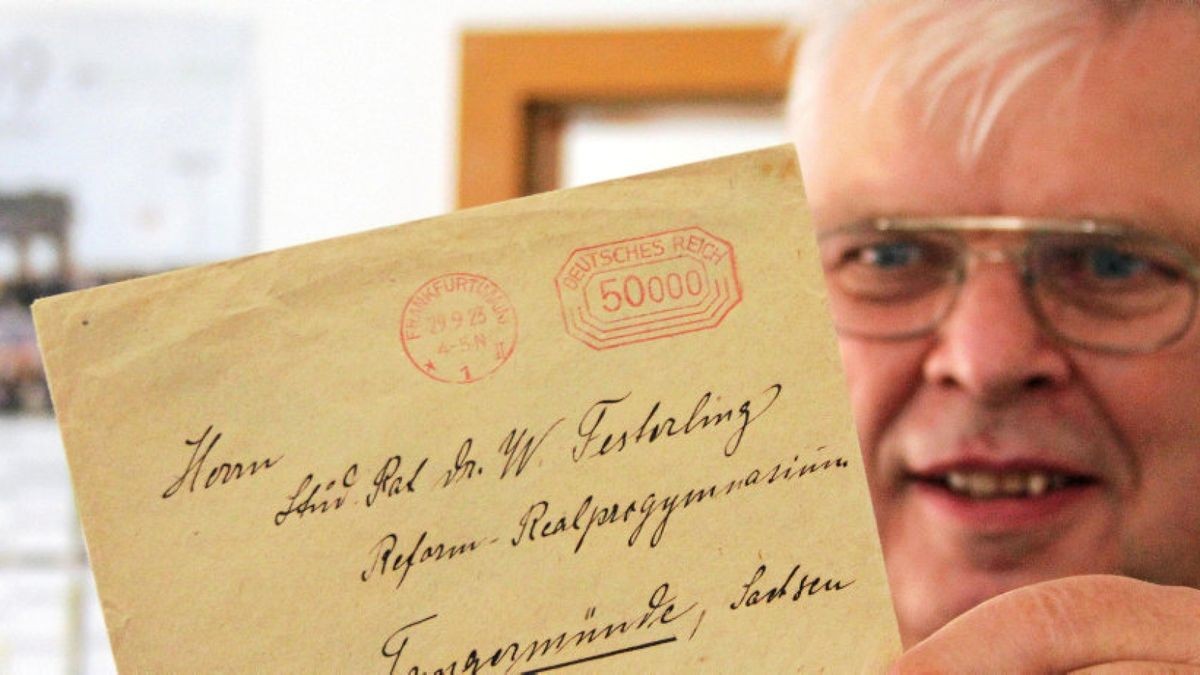 FRANKFURT(MAIN)
29.9.23
4-5N
* 1 II
DEUTSCHES REICH
50000
Herrn
Stud. Rat Dr. W. Festerling
Reform-Realprogymnasium
Tangermünde, Sachsen